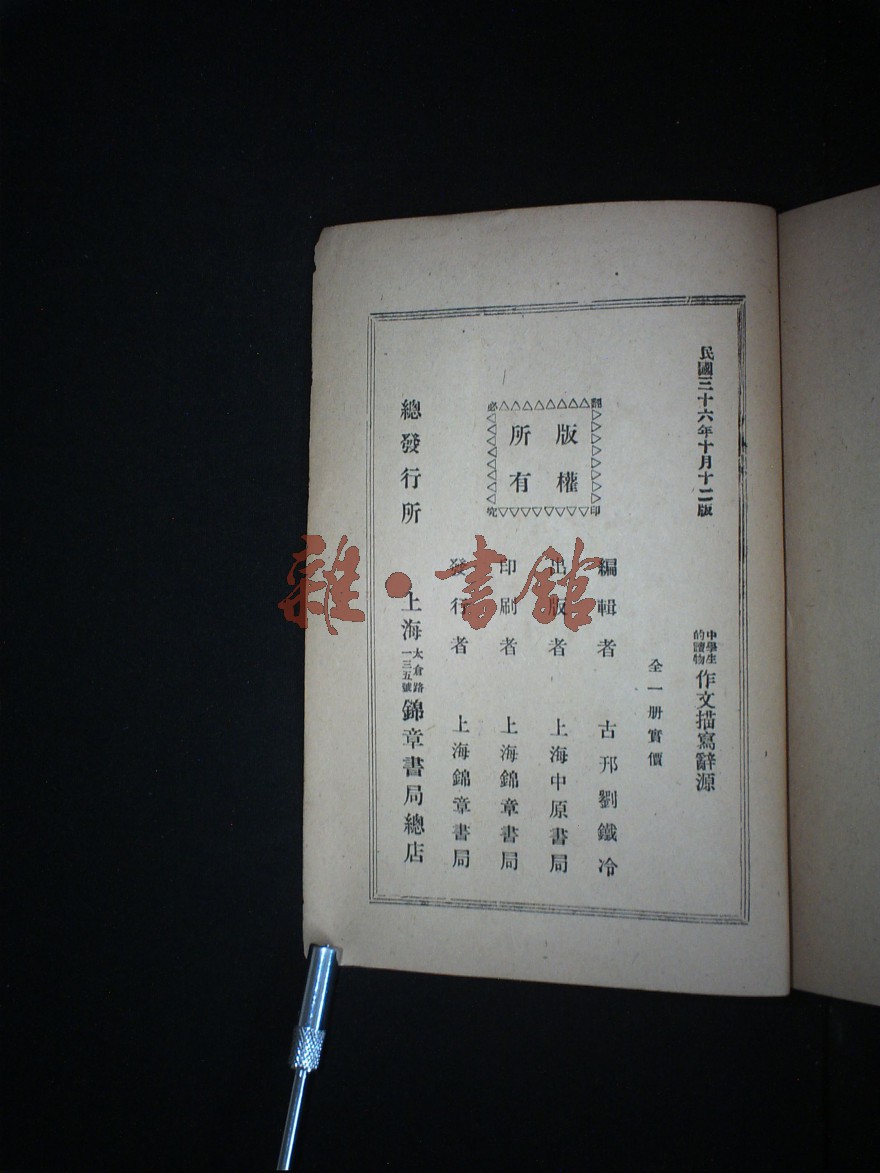 民國三十六年十月十二版
中學生的讀物 作文描寫辭源
全一册實價
版權所有
翻印必究
編輯者 古邗劉鐵冷
出版者 上海中原書局
印刷者 上海錦章書局
發行者 上海錦章書局
總發行所 上海太倉路一三五號錦章書局總店
雜·書館